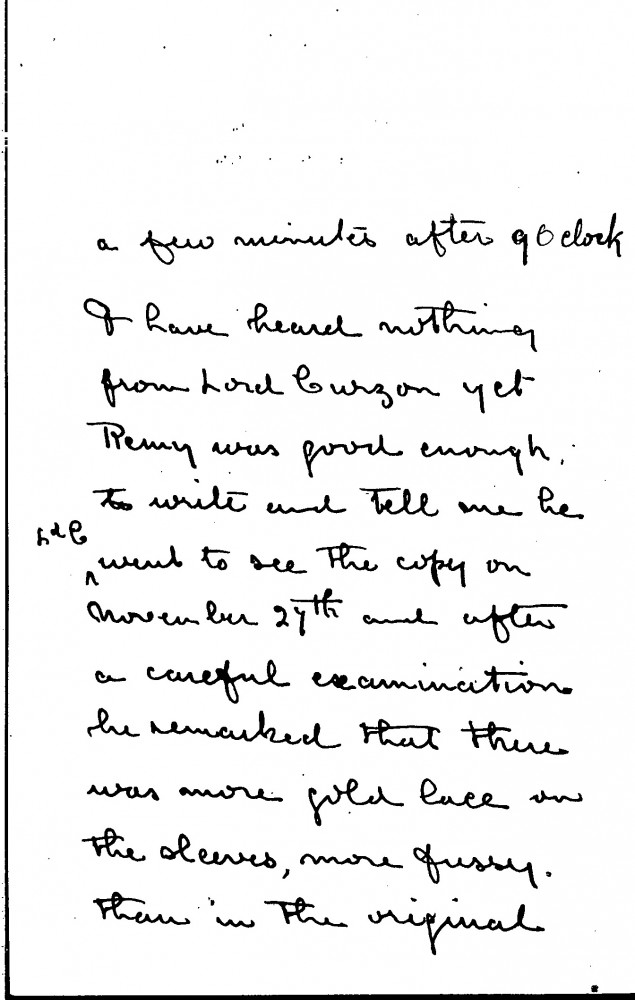 a few minutes after 9 O clock
I have heard nothing
from Lord Curzon yet
Remy was good enough
to write and tell me he
Ld C
went to see the copy on
November 27th and after
a careful examination
he remarked that there
was more gold lace on
the sleeves, more fussy.
than in the original